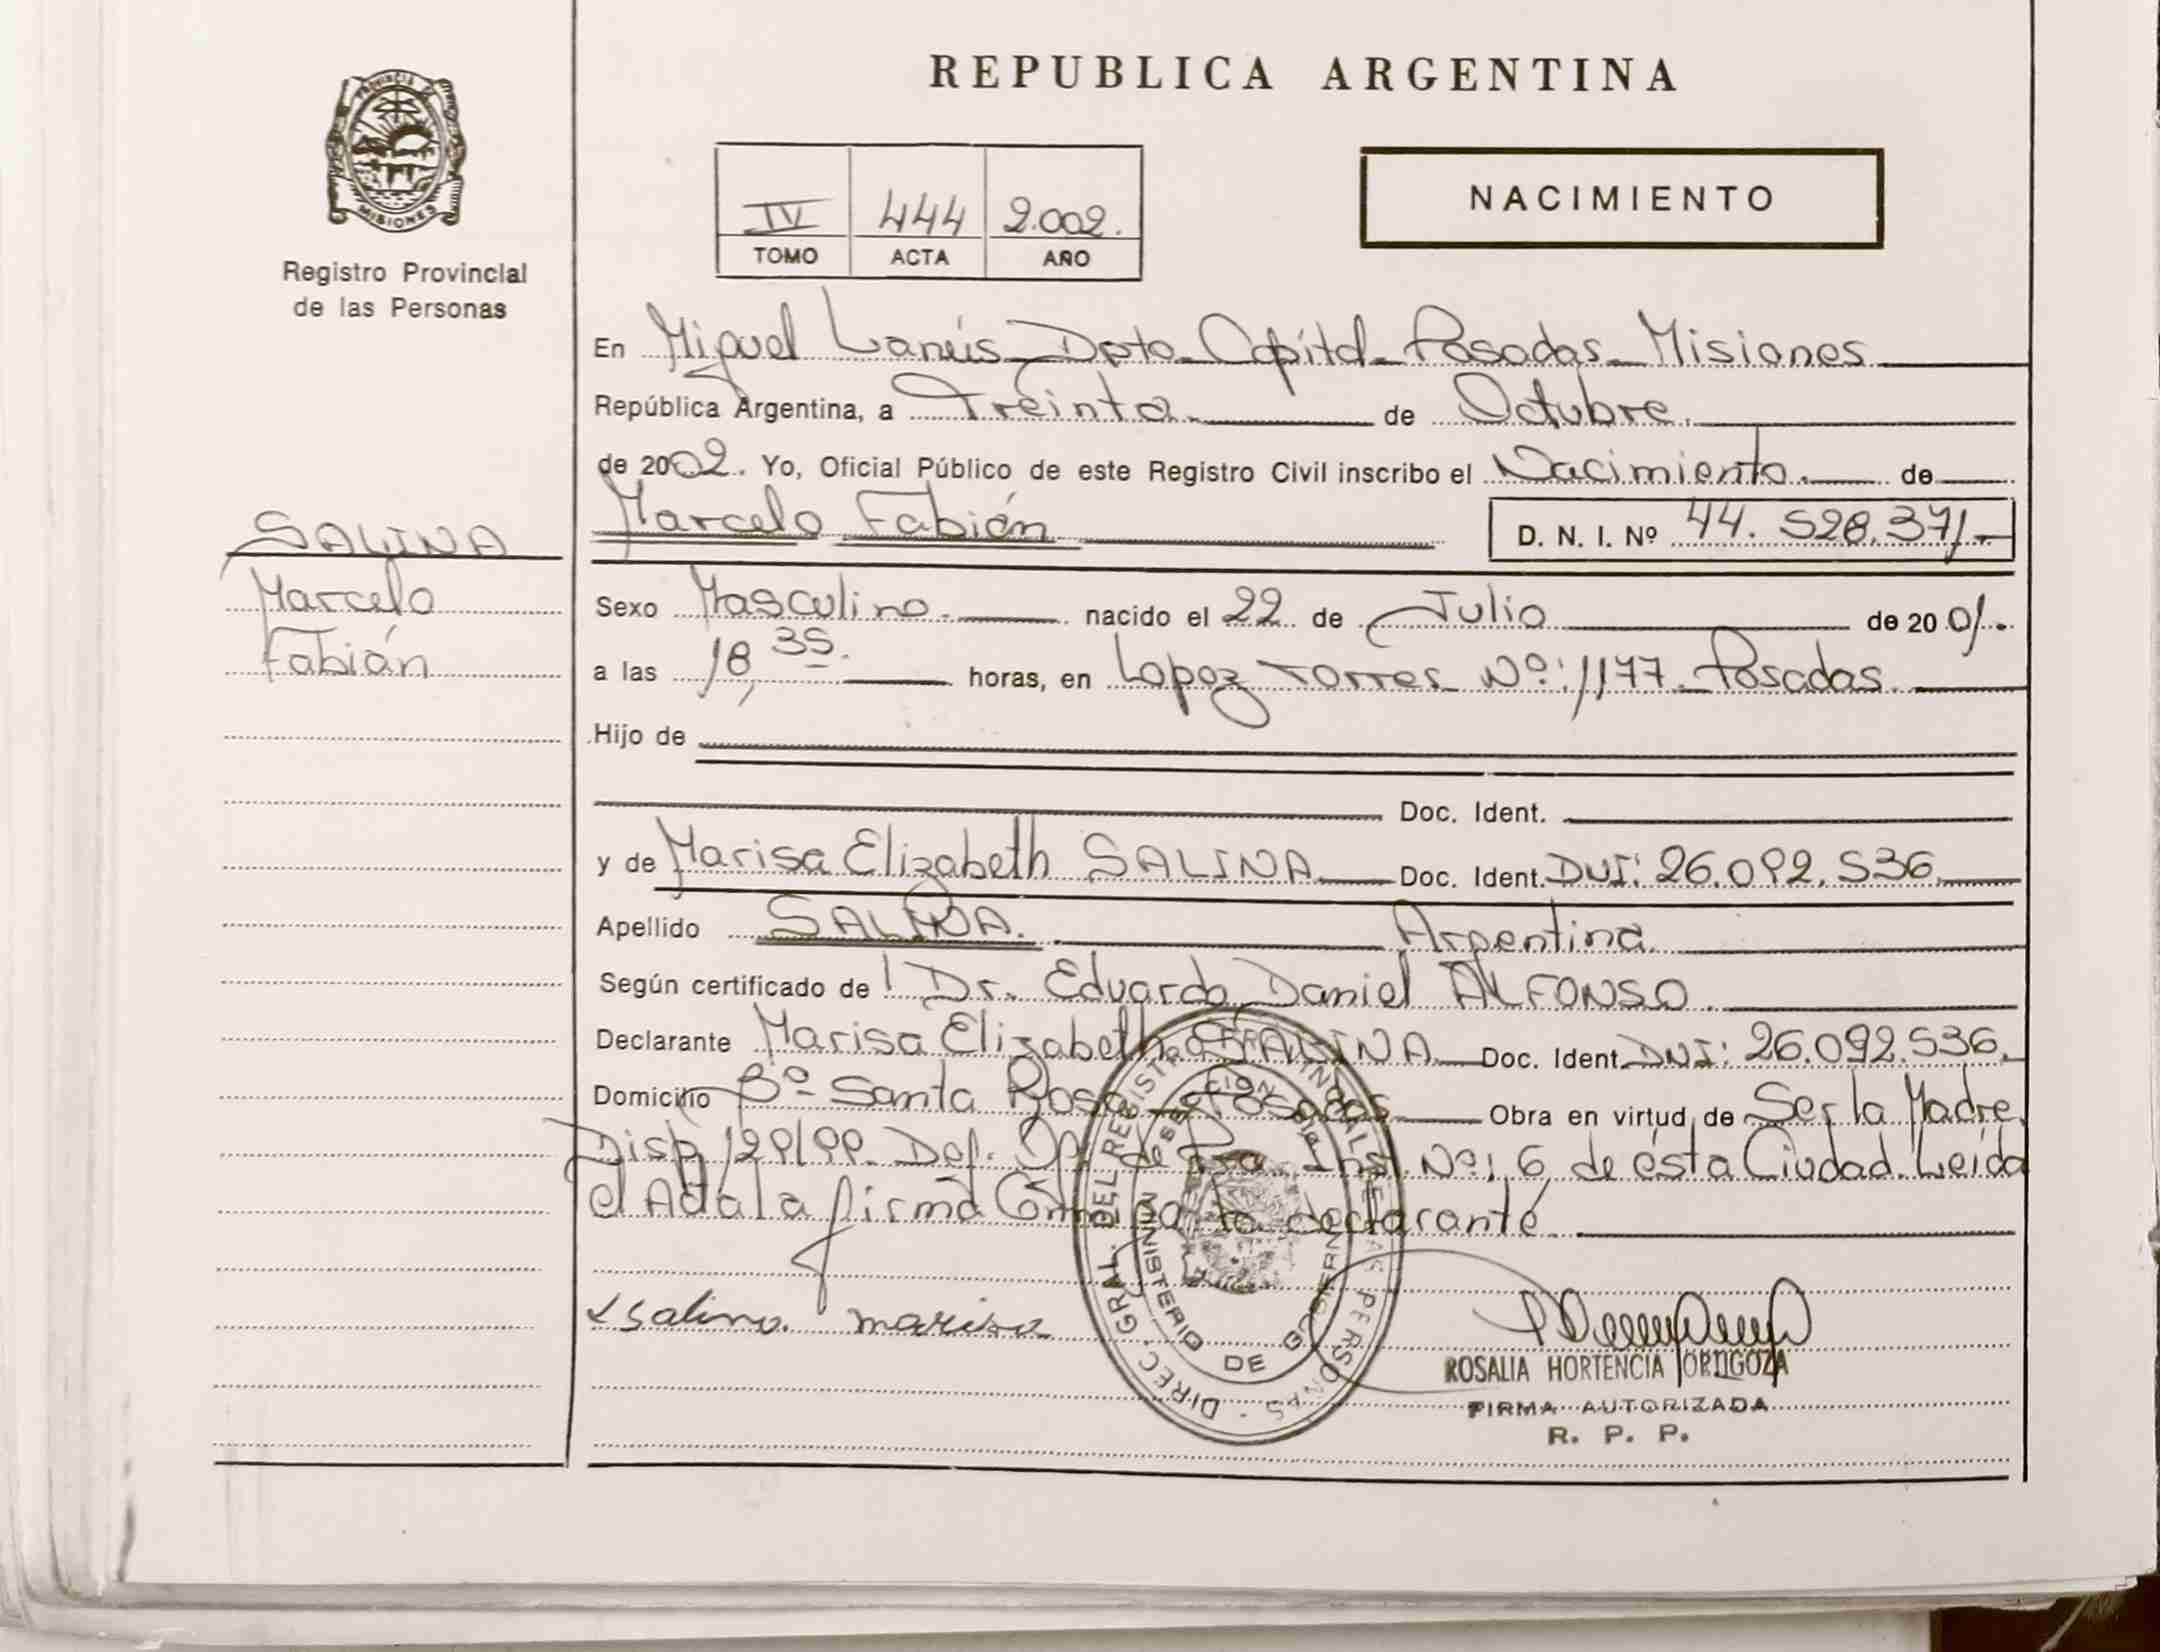 REPUBLICA ARGENTINA
PROVINCIA DE MISIONES
Registro Provincial
de las Personas
IV 444 2.002.
TOMO ACTA AÑO
NACIMIENTO
En Miguel Lanús Dpto Capital Posadas Misiones
República Argentina, a Treinta de Octubre.
de 2002. Yo, Oficial Público de este Registro Civil inscribo el Nacimiento. de
Marcelo Fabián D. N. I. Nº 44. 528.371.-
SALINA
Marcelo
Fabián
Sexo Masculino. nacido el 22 de Julio de 2001.
a las 18,35. horas, en Lopez Torres Nº: 1177. Posadas.
Hijo de
Doc. Ident.
y de Marisa Elizabeth SALINA Doc. Ident. DNI: 26.092.536.
Apellido SALINA. Argentina
Según certificado de Dr. Eduardo Daniel ALFONSO.
Declarante Marisa Elizabeth SALINA Doc. Ident. DNI: 26.092.536.
Domicilio Bº Santa Rosa Posadas Obra en virtud de Ser la Madre.
Disp. 129/99 Def. Of. de Inst. Nº: 6 de ésta Ciudad. Leida
el Acta la firma la declarante
Salina marisa
ROSALIA HORTENCIA ORTIGOZA
FIRMA AUTORIZADA
R. P. P.
DIREC. GRAL. DEL REGISTRO PROVINCIAL DE LAS PERSONAS
MINISTERIO DE GOBIERNO